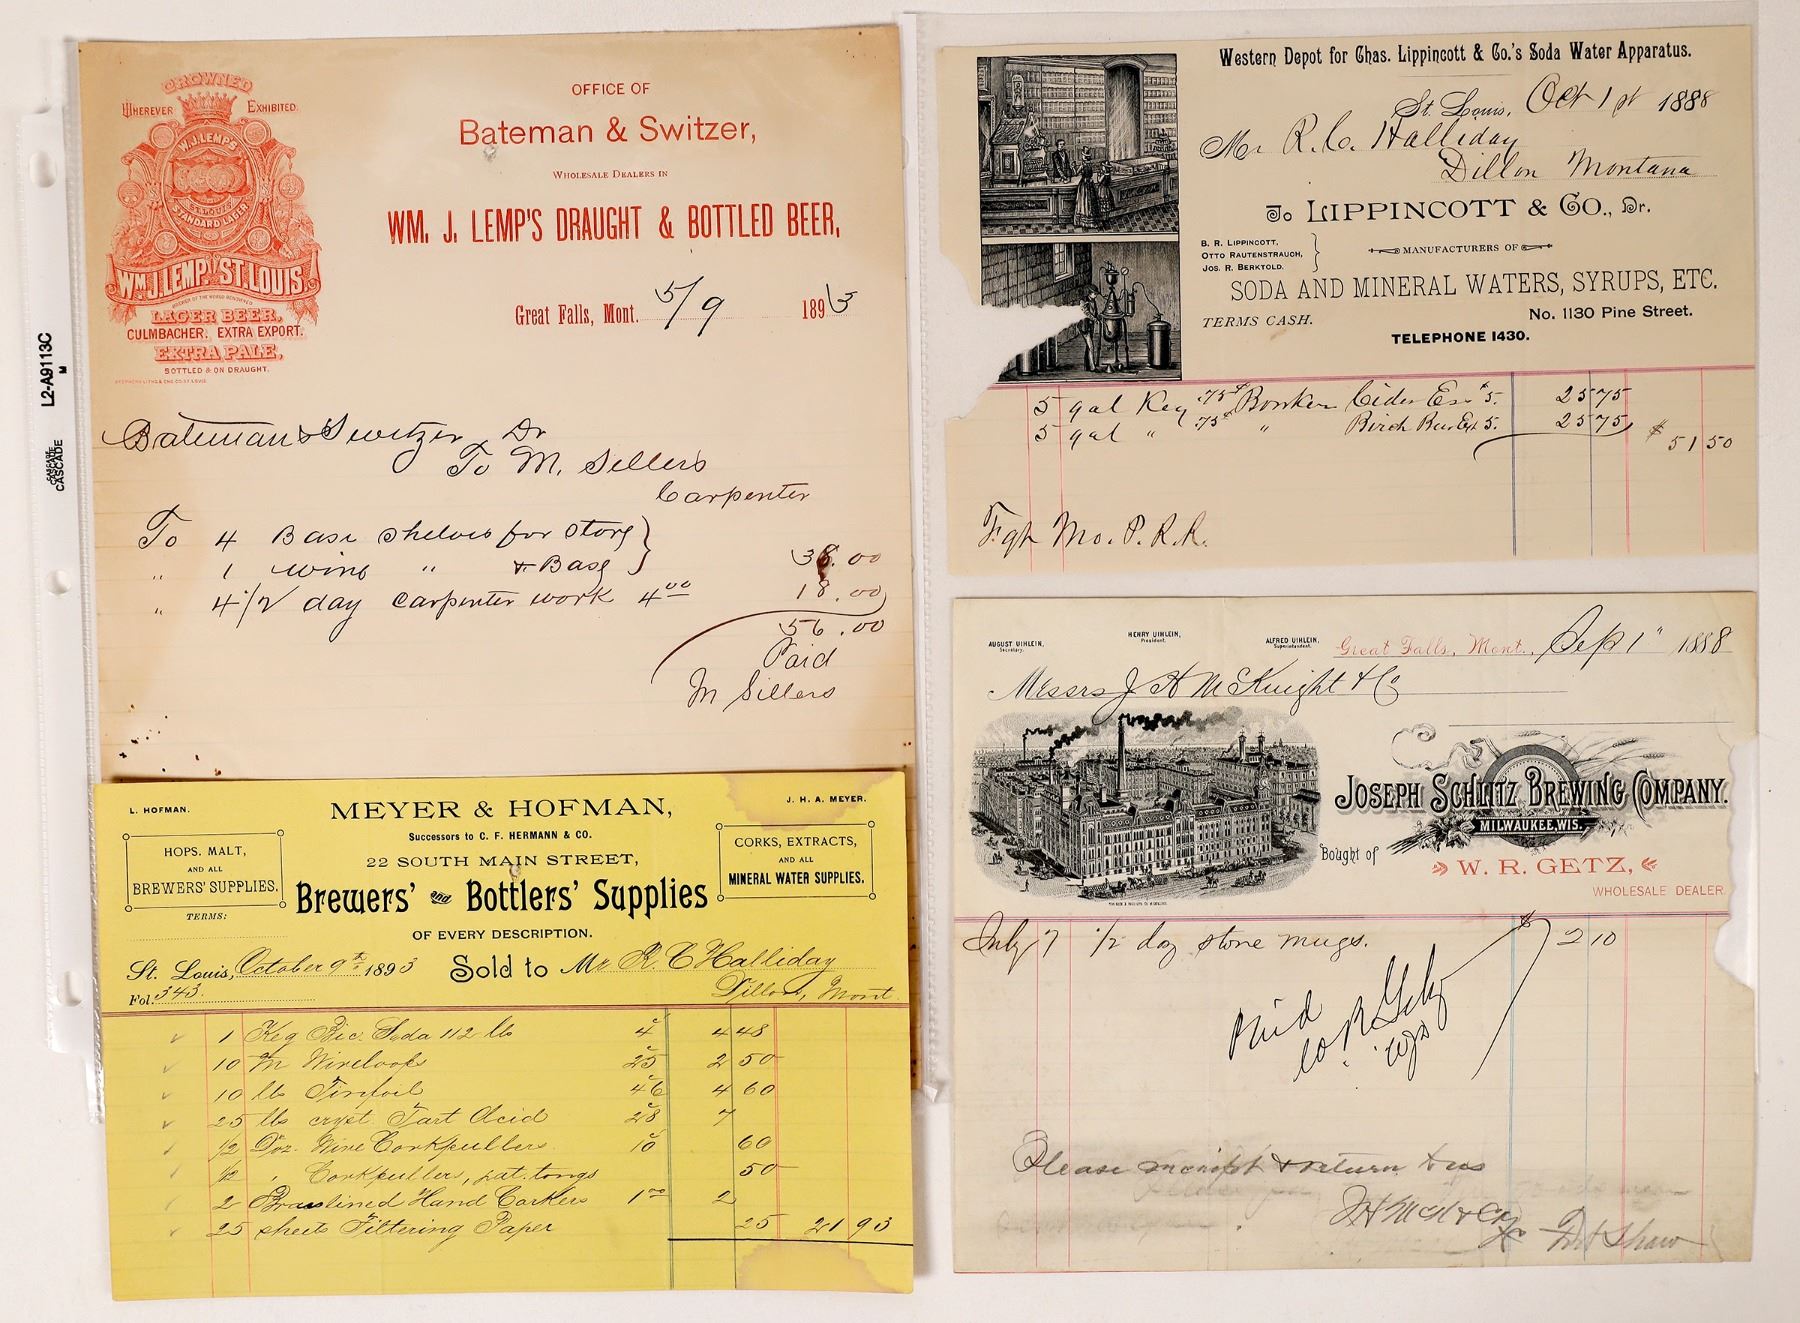 L2-A9113C
M
CASCADE
CROWNED
WHEREVER EXHIBITED.
W.J. LEMP'S
ST. LOUIS
STANDARD LAGER
WM. J. LEMP, ST. LOUIS
LAGER BEER,
CULMBACHER, EXTRA EXPORT.
EXTRA PALE,
BOTTLED & ON DRAUGHT.
OFFICE OF
Bateman & Switzer,
WHOLESALE DEALERS IN
WM. J. LEMP'S DRAUGHT & BOTTLED BEER,
Great Falls, Mont. 5/9 1893
Bateman & Switzer Dr
To M. Sellers
Carpenter
To 4 Base shelves for Store
" 1 wing " & Base 38.00
" 4 1/2 day carpenter work 4 00 18.00
56.00
Paid
M Sellers
L. HOFMAN. J. H. A. MEYER.
MEYER & HOFMAN,
Successors to C. F. HERMANN & CO.
22 SOUTH MAIN STREET,
HOPS, MALT,
AND ALL
BREWERS' SUPPLIES.
CORKS, EXTRACTS,
AND ALL
MINERAL WATER SUPPLIES.
Brewers' and Bottlers' Supplies
TERMS:
OF EVERY DESCRIPTION.
St. Louis, October 9th 1893 Sold to Mr R. C Halliday
Fol. 343. Dillon, Mont.
1 Keg Bic. Soda 112 lb 4 4 48
10 M Wireloops 25 2 50
10 lb Tinfoil 46 4 60
25 lbs cryst Tart Acid 28 7
1/2 Doz. Wine Corkpullers 10 60
1/2 " Corkpullers, pat. tongs 50
2 Brasslined Hand Corkers 1 00 2
25 sheets Filtering Paper 25 21 93
Western Depot for Chas. Lippincott & Co.'s Soda Water Apparatus.
St. Louis, Oct 1st 1888
Mr R. C. Halliday
Dillon Montana
To LIPPINCOTT & CO., Dr.
B. R. LIPPINCOTT,
OTTO RAUTENSTRAUCH,
JOS. R. BERKTOLD.
MANUFACTURERS OF
SODA AND MINERAL WATERS, SYRUPS, ETC.
TERMS CASH. No. 1130 Pine Street.
TELEPHONE 1430.
5 gal Keg .75 Cider Ex $5. 25 75
5 gal " .75 " Birch Beer Ext 5. 25 75 $51 50
Fgh Mo. P. R. R.
AUGUST UIHLEIN,
Secretary.
HENRY UIHLEIN,
President.
ALFRED UIHLEIN,
Superintendent.
Great Falls, Mont., Sep 1" 1888
Messrs J H McKnight & Co
JOSEPH SCHLITZ BREWING COMPANY.
MILWAUKEE, WIS.
Bought of W. R. GETZ,
WHOLESALE DEALER
July 7 1/2 doz stone mugs. $2 10
Paid
W R Getz
Please receipt & return to us
J H McK & Co